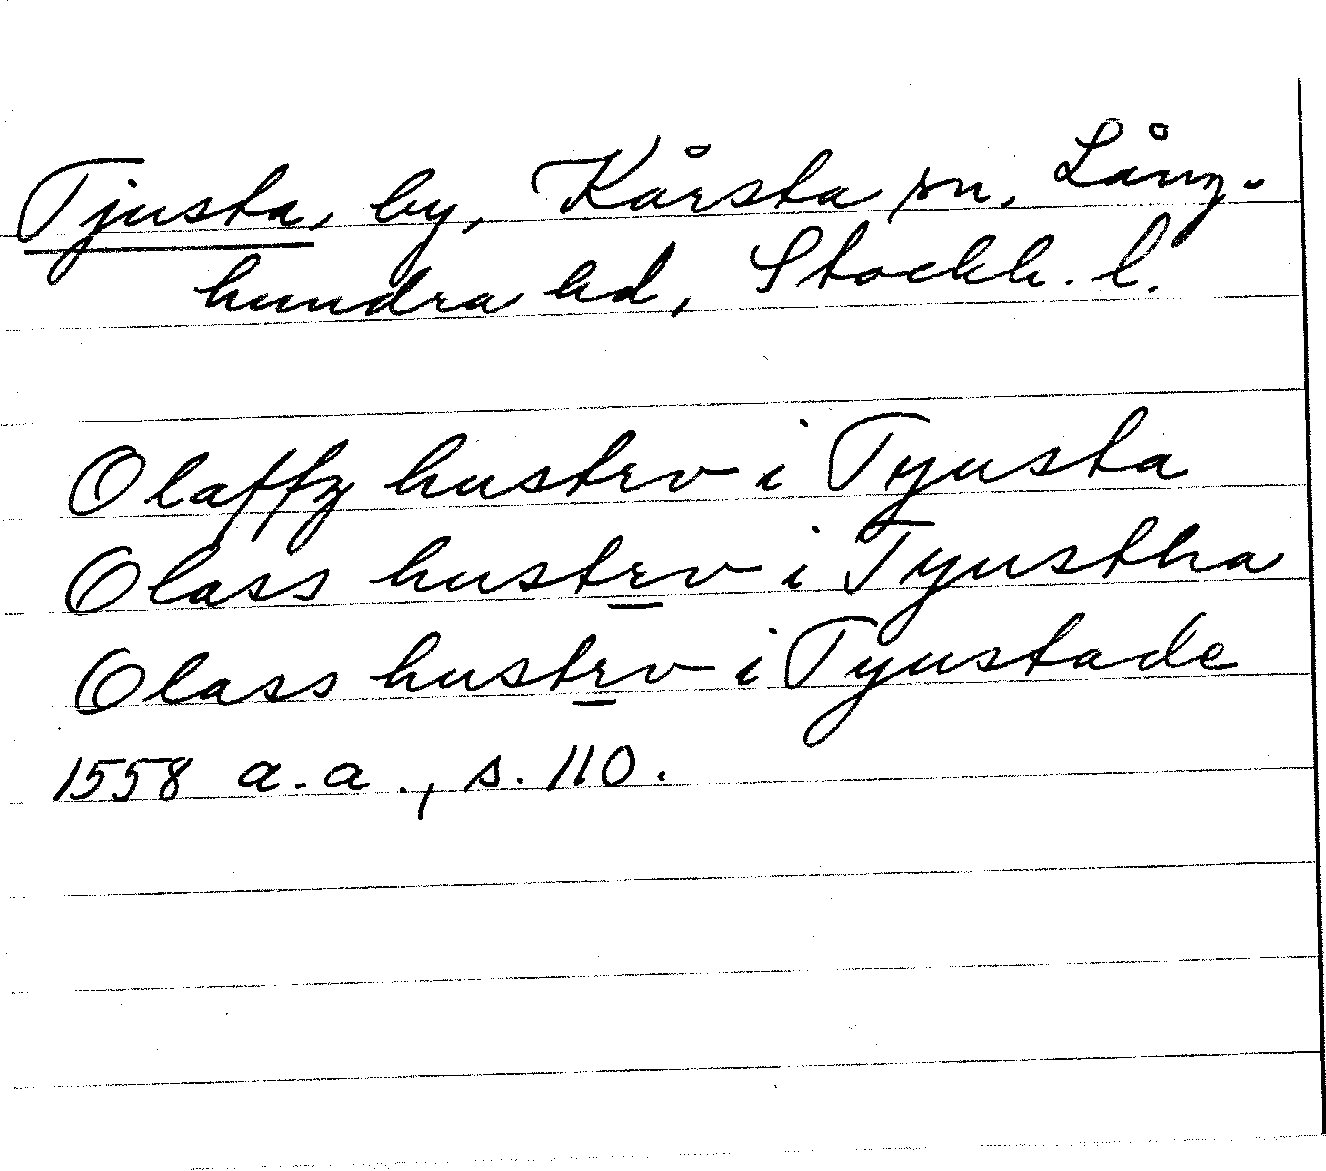 Tjusta, by, Kårsta sn, Lång-
hundra hd, Stockh. l.
Olaffz hustrv i Tyusta
Olass hustrv i Tyustha
Olass hustrv i Tyustade
1558 a.a., s. 110.